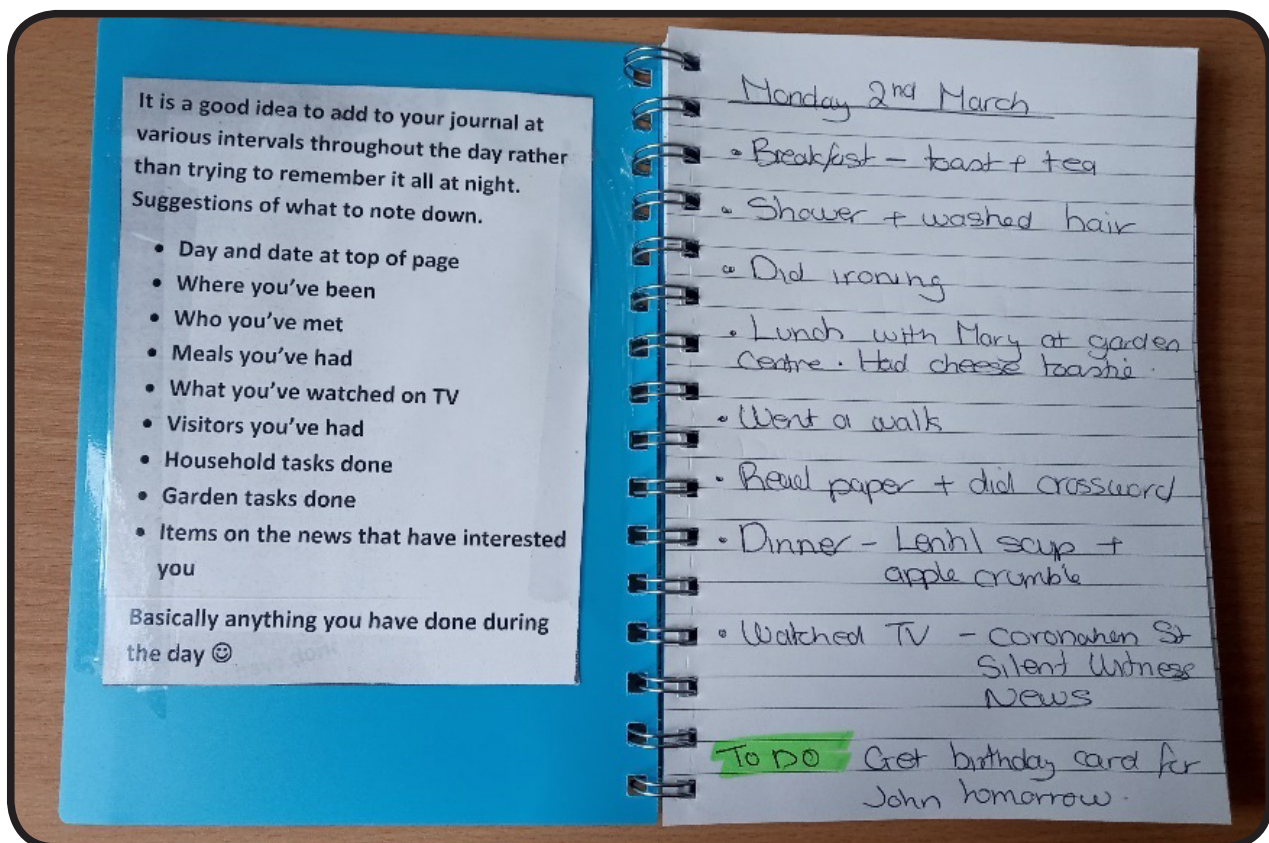 It is a good idea to add to your journal at
various intervals throughout the day rather
than trying to remember it all at night.
Suggestions of what to note down.
• Day and date at top of page
• Where you've been
• Who you've met
• Meals you've had
• What you've watched on TV
• Visitors you've had
• Household tasks done
• Garden tasks done
• Items on the news that have interested
you
Basically anything you have done during
the day ☺
Monday 2nd March
• Breakfast - toast + tea
• Shower + washed hair
• Did ironing
• Lunch with Mary at garden
centre. Had cheese toastie.
• Went a walk
• Read paper + did crossword
• Dinner - Lentil soup +
apple crumble
• Watched TV - Coronation St
Silent Witness
News
TO DO Get birthday card for
John tomorrow.